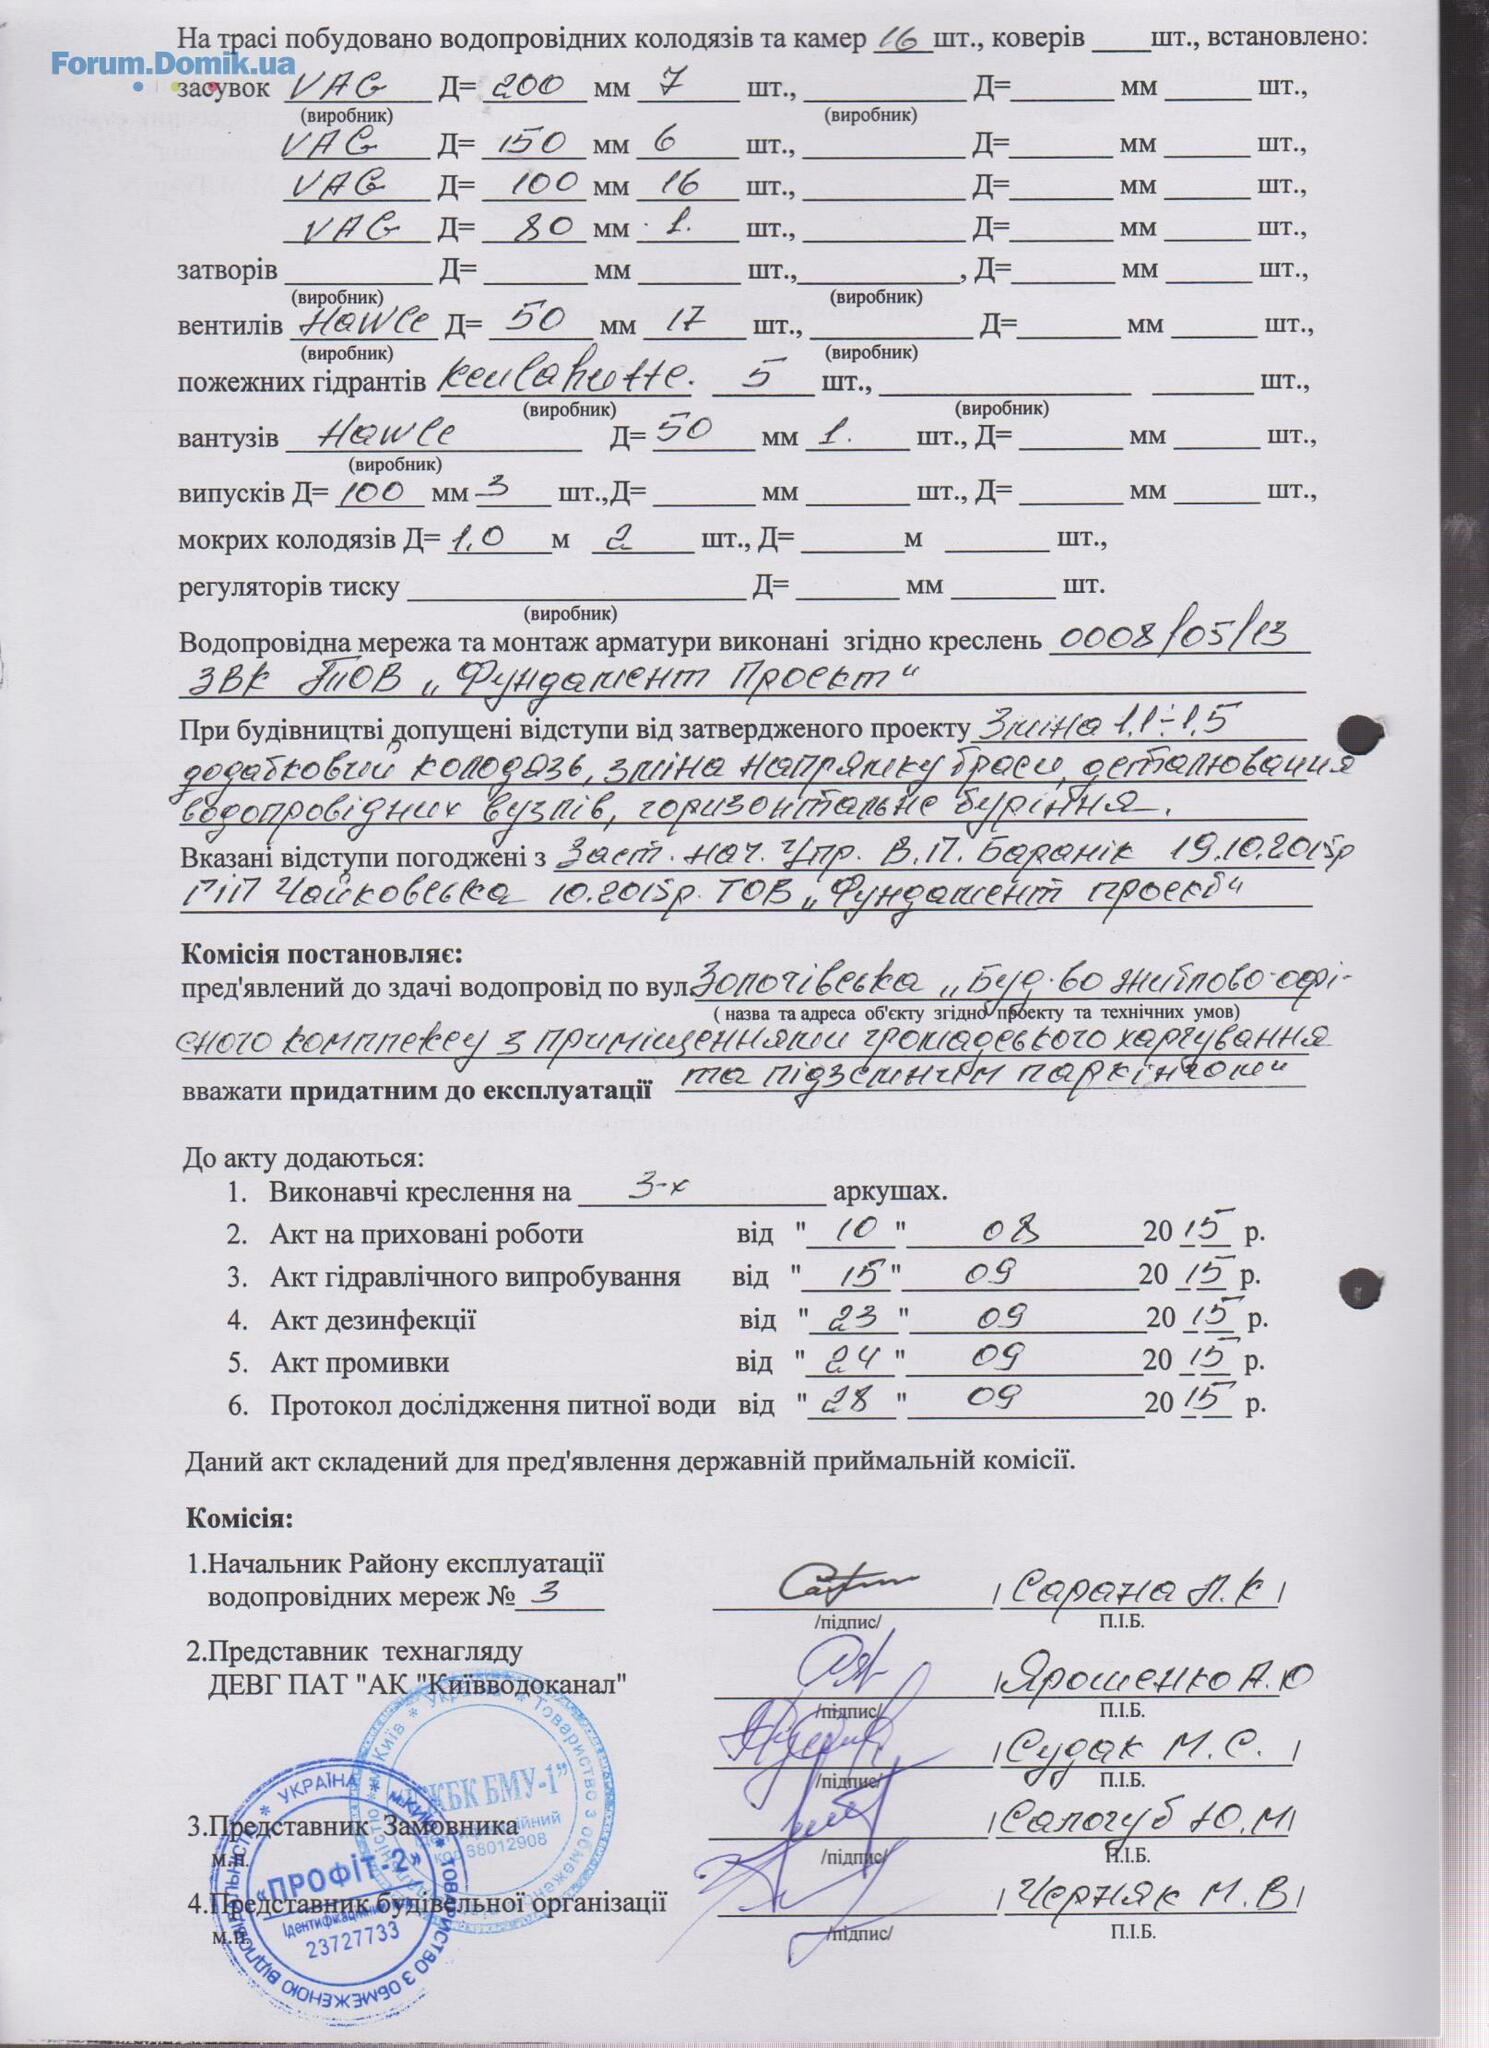 На трасі побудовано водопровідних колодязів та камер 16 шт., коверів ____шт., встановлено:
Forum.Domik.ua
засувок VAG Д= 200 мм 7 шт., ____ Д=____ мм ____ шт.,
(виробник) (виробник)
VAG Д= 150 мм 6 шт., ____ Д=____ мм ____ шт.,
VAG Д= 100 мм 16 шт., ____ Д=____ мм ____ шт.,
VAG Д= 80 мм 1. шт., ____ Д=____ мм ____ шт.,
затворів ____ Д= ____ мм ____ шт.,____, Д=____ мм ____ шт.,
(виробник) (виробник)
вентилів Hawle Д= 50 мм 17 шт., ____ Д=____ мм ____ шт.,
(виробник) (виробник)
пожежних гідрантів Keulahutte. 5 шт., ____ ____ шт.,
(виробник) (виробник)
вантузів Hawle Д= 50 мм 1. шт., Д=____ мм ____ шт.,
(виробник)
випусків Д= 100 мм 3 шт.,Д=____ мм ____ шт., Д=____ мм ____ шт.,
мокрих колодязів Д= 1,0 м 2 шт., Д= ____м ____ шт.,
регуляторів тиску ____ Д= ____ мм ____ шт.
(виробник)
Водопровідна мережа та монтаж арматури виконані згідно креслень 0008/05/13
ЗВК ТОВ „Фундамент Проект"
При будівництві допущені відступи від затвердженого проекту Зміна 1,1÷1,5
додатковий колодязь, зміна напрямку траси, деталювання
водопровідних вузлів, горизонтальне буріння.
Вказані відступи погоджені з Заст. нач. Упр. В.П. Баранік 19.10.2015р
ГІП Чайковська 10.2015р. ТОВ „Фундамент проект"
Комісія постановляє:
пред'явлений до здачі водопровід по вул. Золочівська „Буд-во житлово-офі-
( назва та адреса об'єкту згідно проекту та технічних умов)
сного комплексу з приміщеннями громадського харчування
вважати придатним до експлуатації та підземним паркінгом"
До акту додаються:
1. Виконавчі креслення на 3-х аркушах.
2. Акт на приховані роботи від "10" 08 2015 р.
3. Акт гідравлічного випробування від "15" 09 2015 р.
4. Акт дезинфекції від "23" 09 2015 р.
5. Акт промивки від "24" 09 2015 р.
6. Протокол дослідження питної води від "28" 09 2015 р.
Даний акт складений для пред'явлення державній приймальній комісії.
Комісія:
1.Начальник Району експлуатації
водопровідних мереж № 3 / Сарана Л.К /
/підпис/ П.І.Б.
2.Представник технагляду
ДЕВГ ПАТ "АК "Київводоканал" / Ярошенко А.Ю
/підпис/ П.І.Б.
/ Судак М.С. /
/підпис/ П.І.Б.
3.Представник Замовника / Сологуб Ю.М /
м.п. /підпис/ П.І.Б.
4.Представник будівельної організації / Черняк М.В /
м.п. /підпис/ П.І.Б.
* Україна * Товариство з обмеженою
м.Київ
БМУ-1”
код 38012908
* УКРАЇНА * м.КИЇВ * ТОВАРИСТВО З ОБМЕЖЕНОЮ ВІДПОВІДАЛЬНІСТЮ
«ПРОФІТ-2»
Ідентифікаційний
23727733